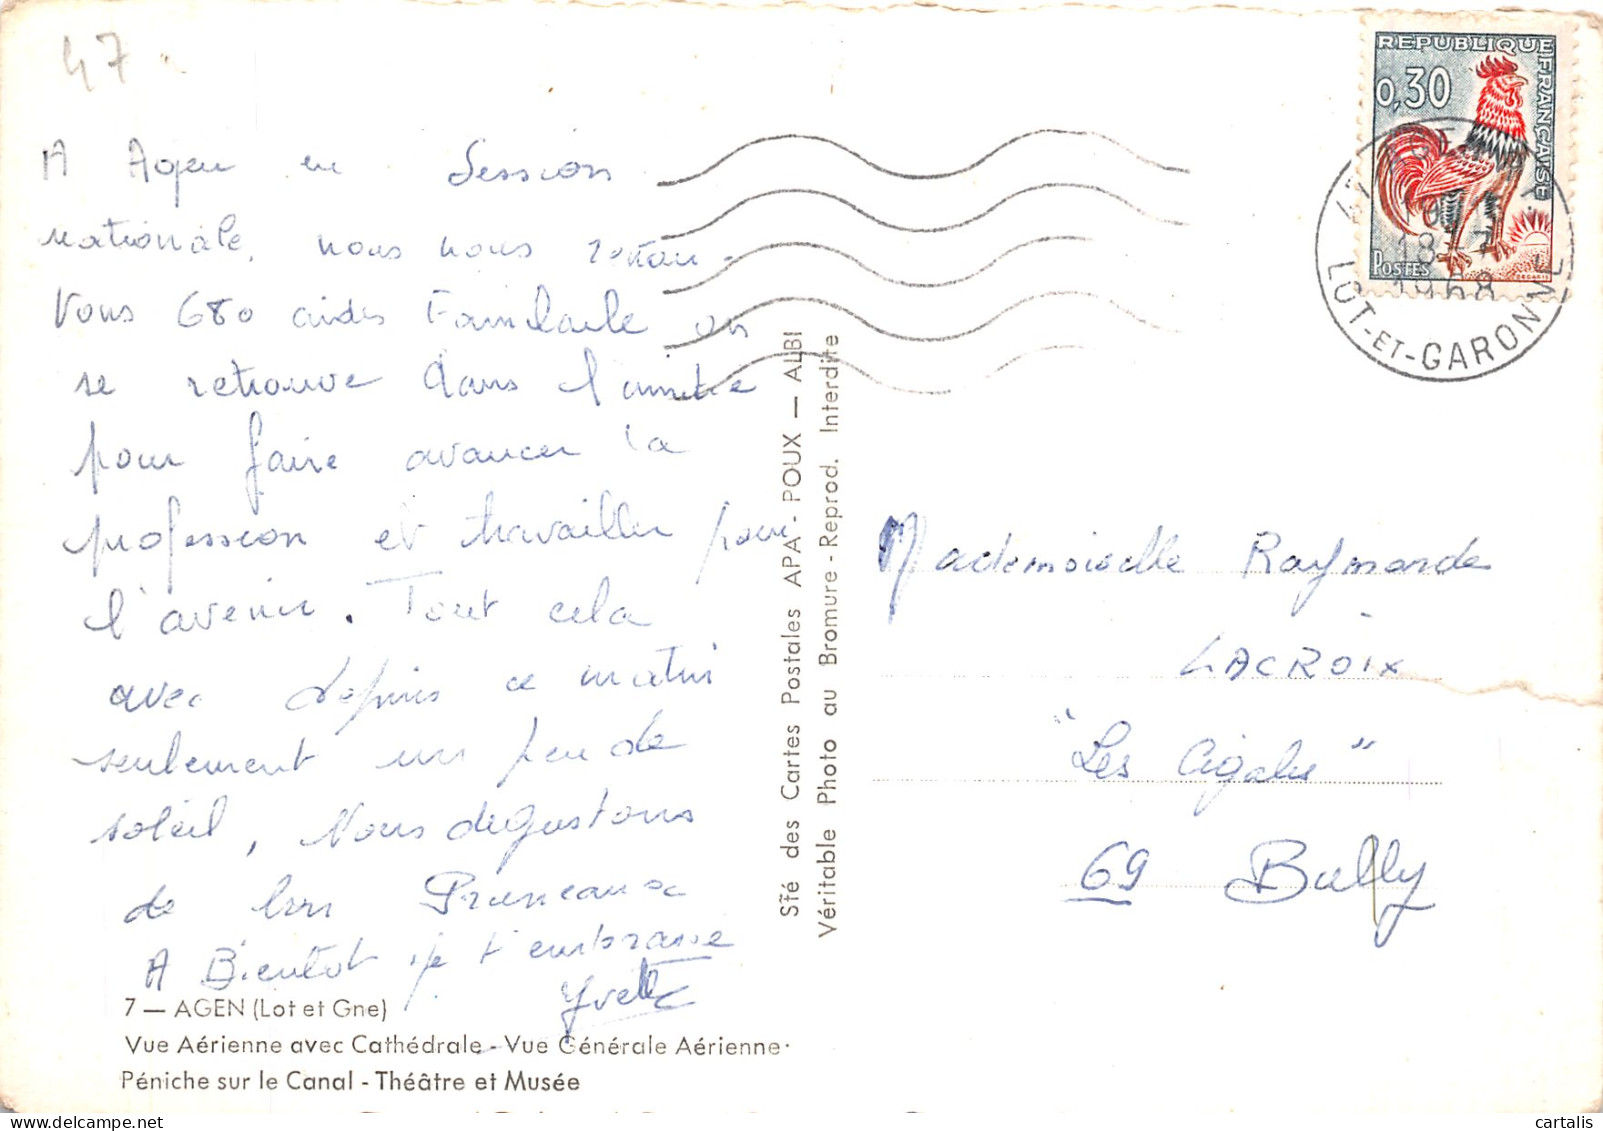 47
A Agen en Session
nationale, nous nous retrou-
vons 680 aides Familiale on
se retrouve dans l'amitié
pour faire avancer la
profession et travailler pour
l'avenir. Tout cela
avec depuis ce matin
seulement un peu de
soleil, Nous degustons
de bon Pruneaux
A Bientot je t'embrasse
Yvette
7 — AGEN (Lot et Gne)
Vue Aérienne avec Cathédrale - Vue Générale Aérienne
Péniche sur le Canal - Théâtre et Musée
Sté des Cartes Postales APA - POUX — ALBI
Véritable Photo au Bromure - Reprod. Interdite
REPUBLIQUE FRANÇAISE
0,30
POSTES
DECARIS
47
18-7
1968
LOT-ET-GARONNE
Mademoiselle Raymonde
LACROIX
"Les Cigales"
69 Bully
cartalis